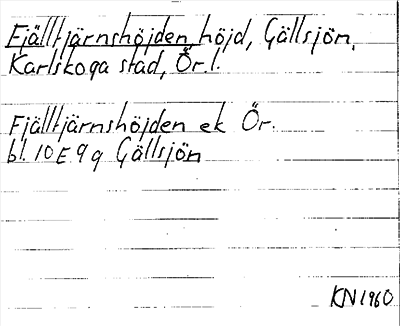 Fjälltjärnshöjden, höjd, Gällsjön,
Karlskoga stad, Ör. l.
Fjälltjärnshöjden ek Ör.
bl. 10E 9g Gällsjön
KN 1960